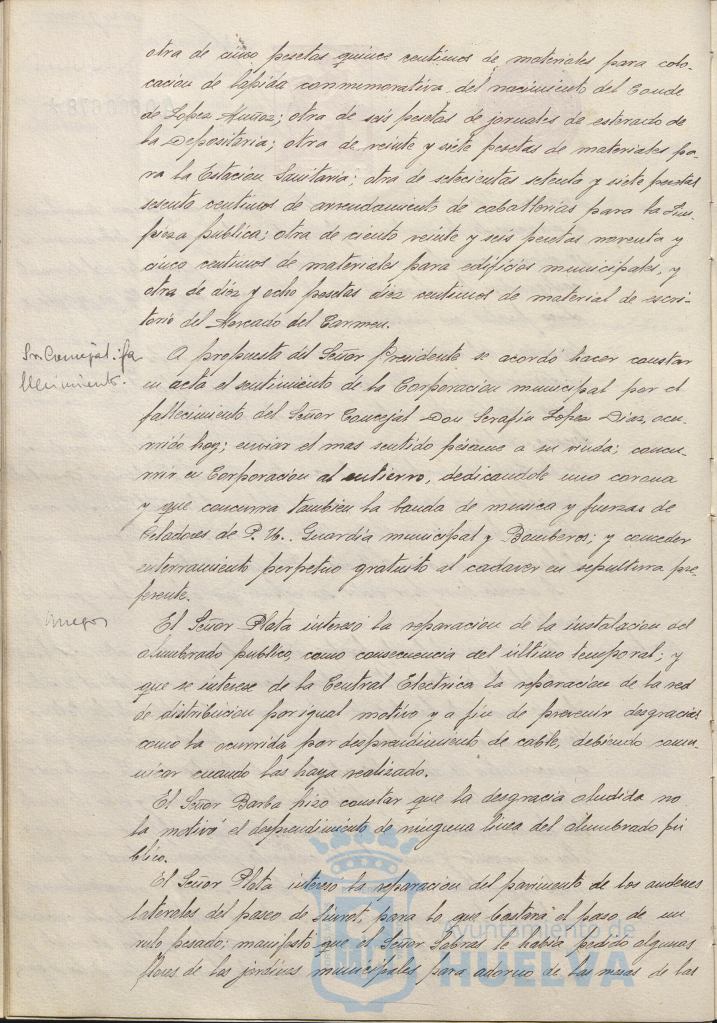 otra de cinco pesetas quince centimos de materiales para colo-
cacion de lápida conmemorativa del nacimiento del Conde
de Lopez Muñoz; otra de seis pesetas de jornales de esterado de
la Depositaria; otra de veinte y siete pesetas de materiales pa-
ra la Estacion Sanitaria; otra de setecientas setenta y siete pesetas
sesenta centimos de arrendamiento de caballerias para la Lim-
pieza publica; otra de ciento veinte y seis pesetas noventa y
cinco centimos de materiales para edificios municipales, y
otra de diez y ocho pesetas diez centimos de material de escri-
torio del Mercado del Carmen.
Sr. Concejal: fa-
llecimiento.
A propuesta del Señor Presidente se acordó hacer constar
en acta el sentimiento de la Corporacion municipal por el
fallecimiento del Señor Concejal Don Serafin Lopez Diaz, ocu-
rrido hoy; enviar el mas sentido pésame a su viuda; concu-
rrir en Corporacion al entierro, dedicandole una corona
y que concurra tambien la banda de musica y fuerzas de
Celadores de P. U., Guardia municipal y Bomberos; y conceder
enterramiento perpetuo gratuito al cadaver en sepultura pre-
ferente.
Ruegos
El Señor Plata intereso la reparacion de la instalacion del
alumbrado publico, como consecuencia del último temporal; y
que se interese de la Central Electrica la reparacion de la red
de distribucion por igual motivo y a fin de prevenir desgracias
como la ocurrida por desprendimiento de cable, debiendo comu-
nicar cuando las haya realizado.
El Señor Barba hizo constar que la desgracia aludida no
la motivó el desprendimiento de ninguna linea del alumbrado pú-
blico.
El Señor Plata interesó la reparacion del pavimento de los andenes
laterales del paseo de , para lo que bastará el paso de un
rulo pesado; manifestó que el Señor le habia pedido algunas
flores de los jardines municipales para adorno de las mesas de las
Ayuntamiento de
HUELVA